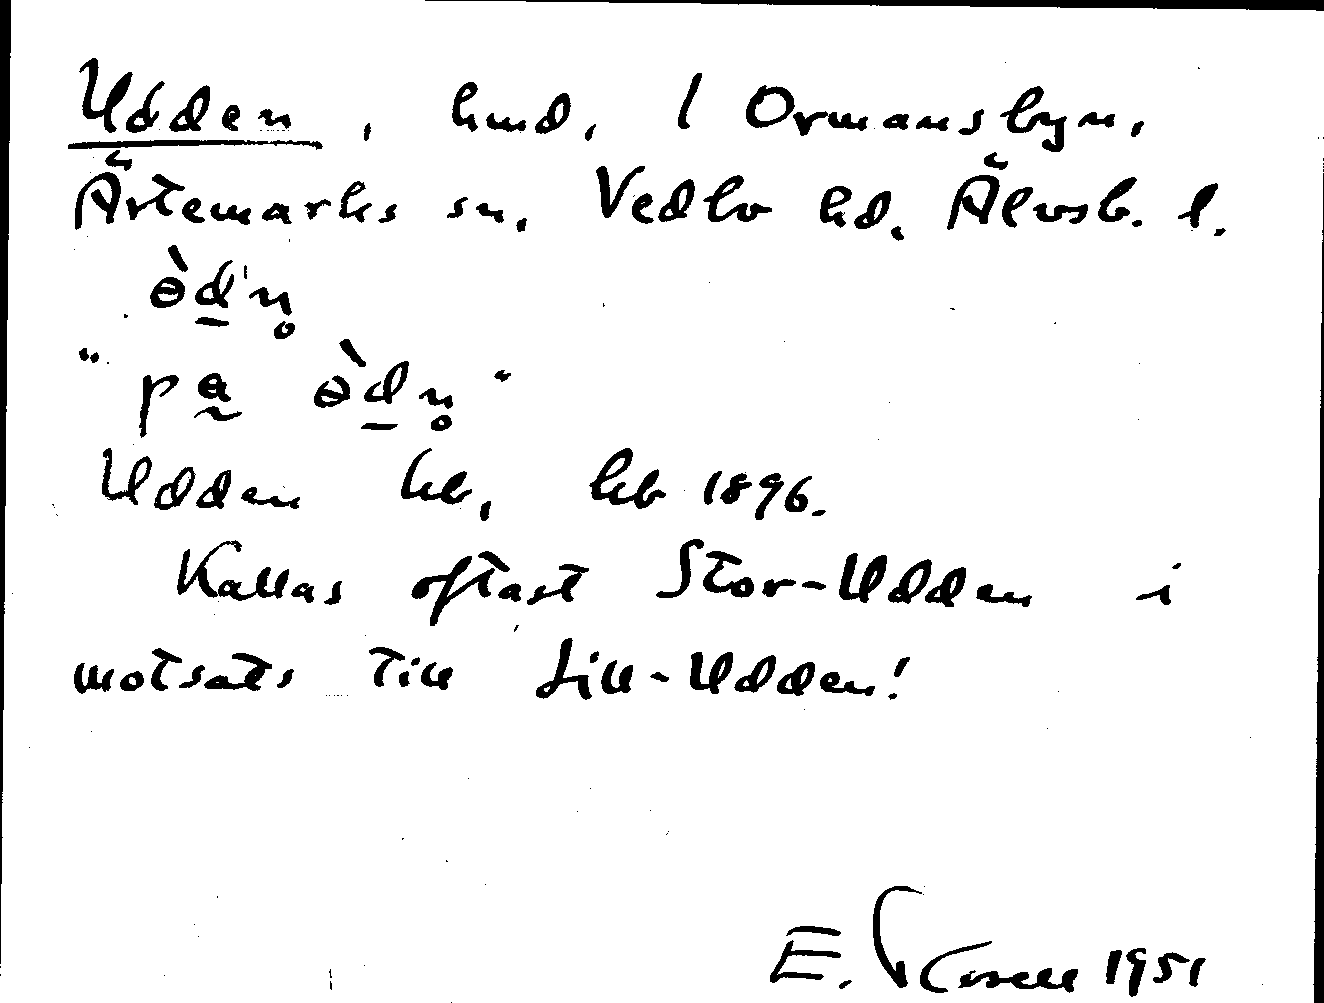 Udden, hmd, 1 Ormansbyn,
Ärtemarks sn, Vedbo hd, Älvsb. l.
ɵ̀d̲'n̥
"pa̰ ɵ̀d̲n̥"
Udden kb, kb 1896.
Kallas oftast Stor-Udden i
motsats till Lill-Udden!
E. 1951